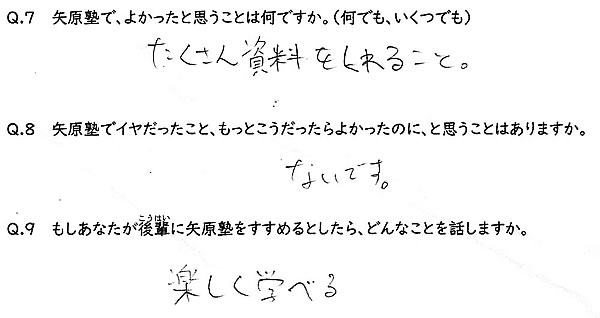 Q.7 矢原塾で、よかったと思うことは何ですか。（何でも、いくつでも）
たくさん資料をくれること。
Q.8 矢原塾でイヤだったこと、もっとこうだったらよかったのに、と思うことはありますか。
ないです。
Q.9 もしあなたが後輩に矢原塾をすすめるとしたら、どんなことを話しますか。
こうはい
楽しく学べる